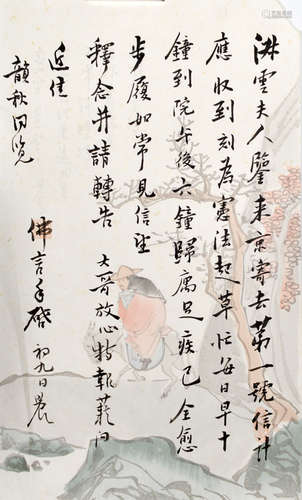 淋雲夫人鑒来京寄去第一號信計
應收到刻為憲法起草忙每日早十
鐘到院午後六鐘歸寓足疾已全愈
步履如常見信望
釋念并請轉告 大哥放心特報藉問
近佳
韻秋同覽
佛言手啓 初九日晨